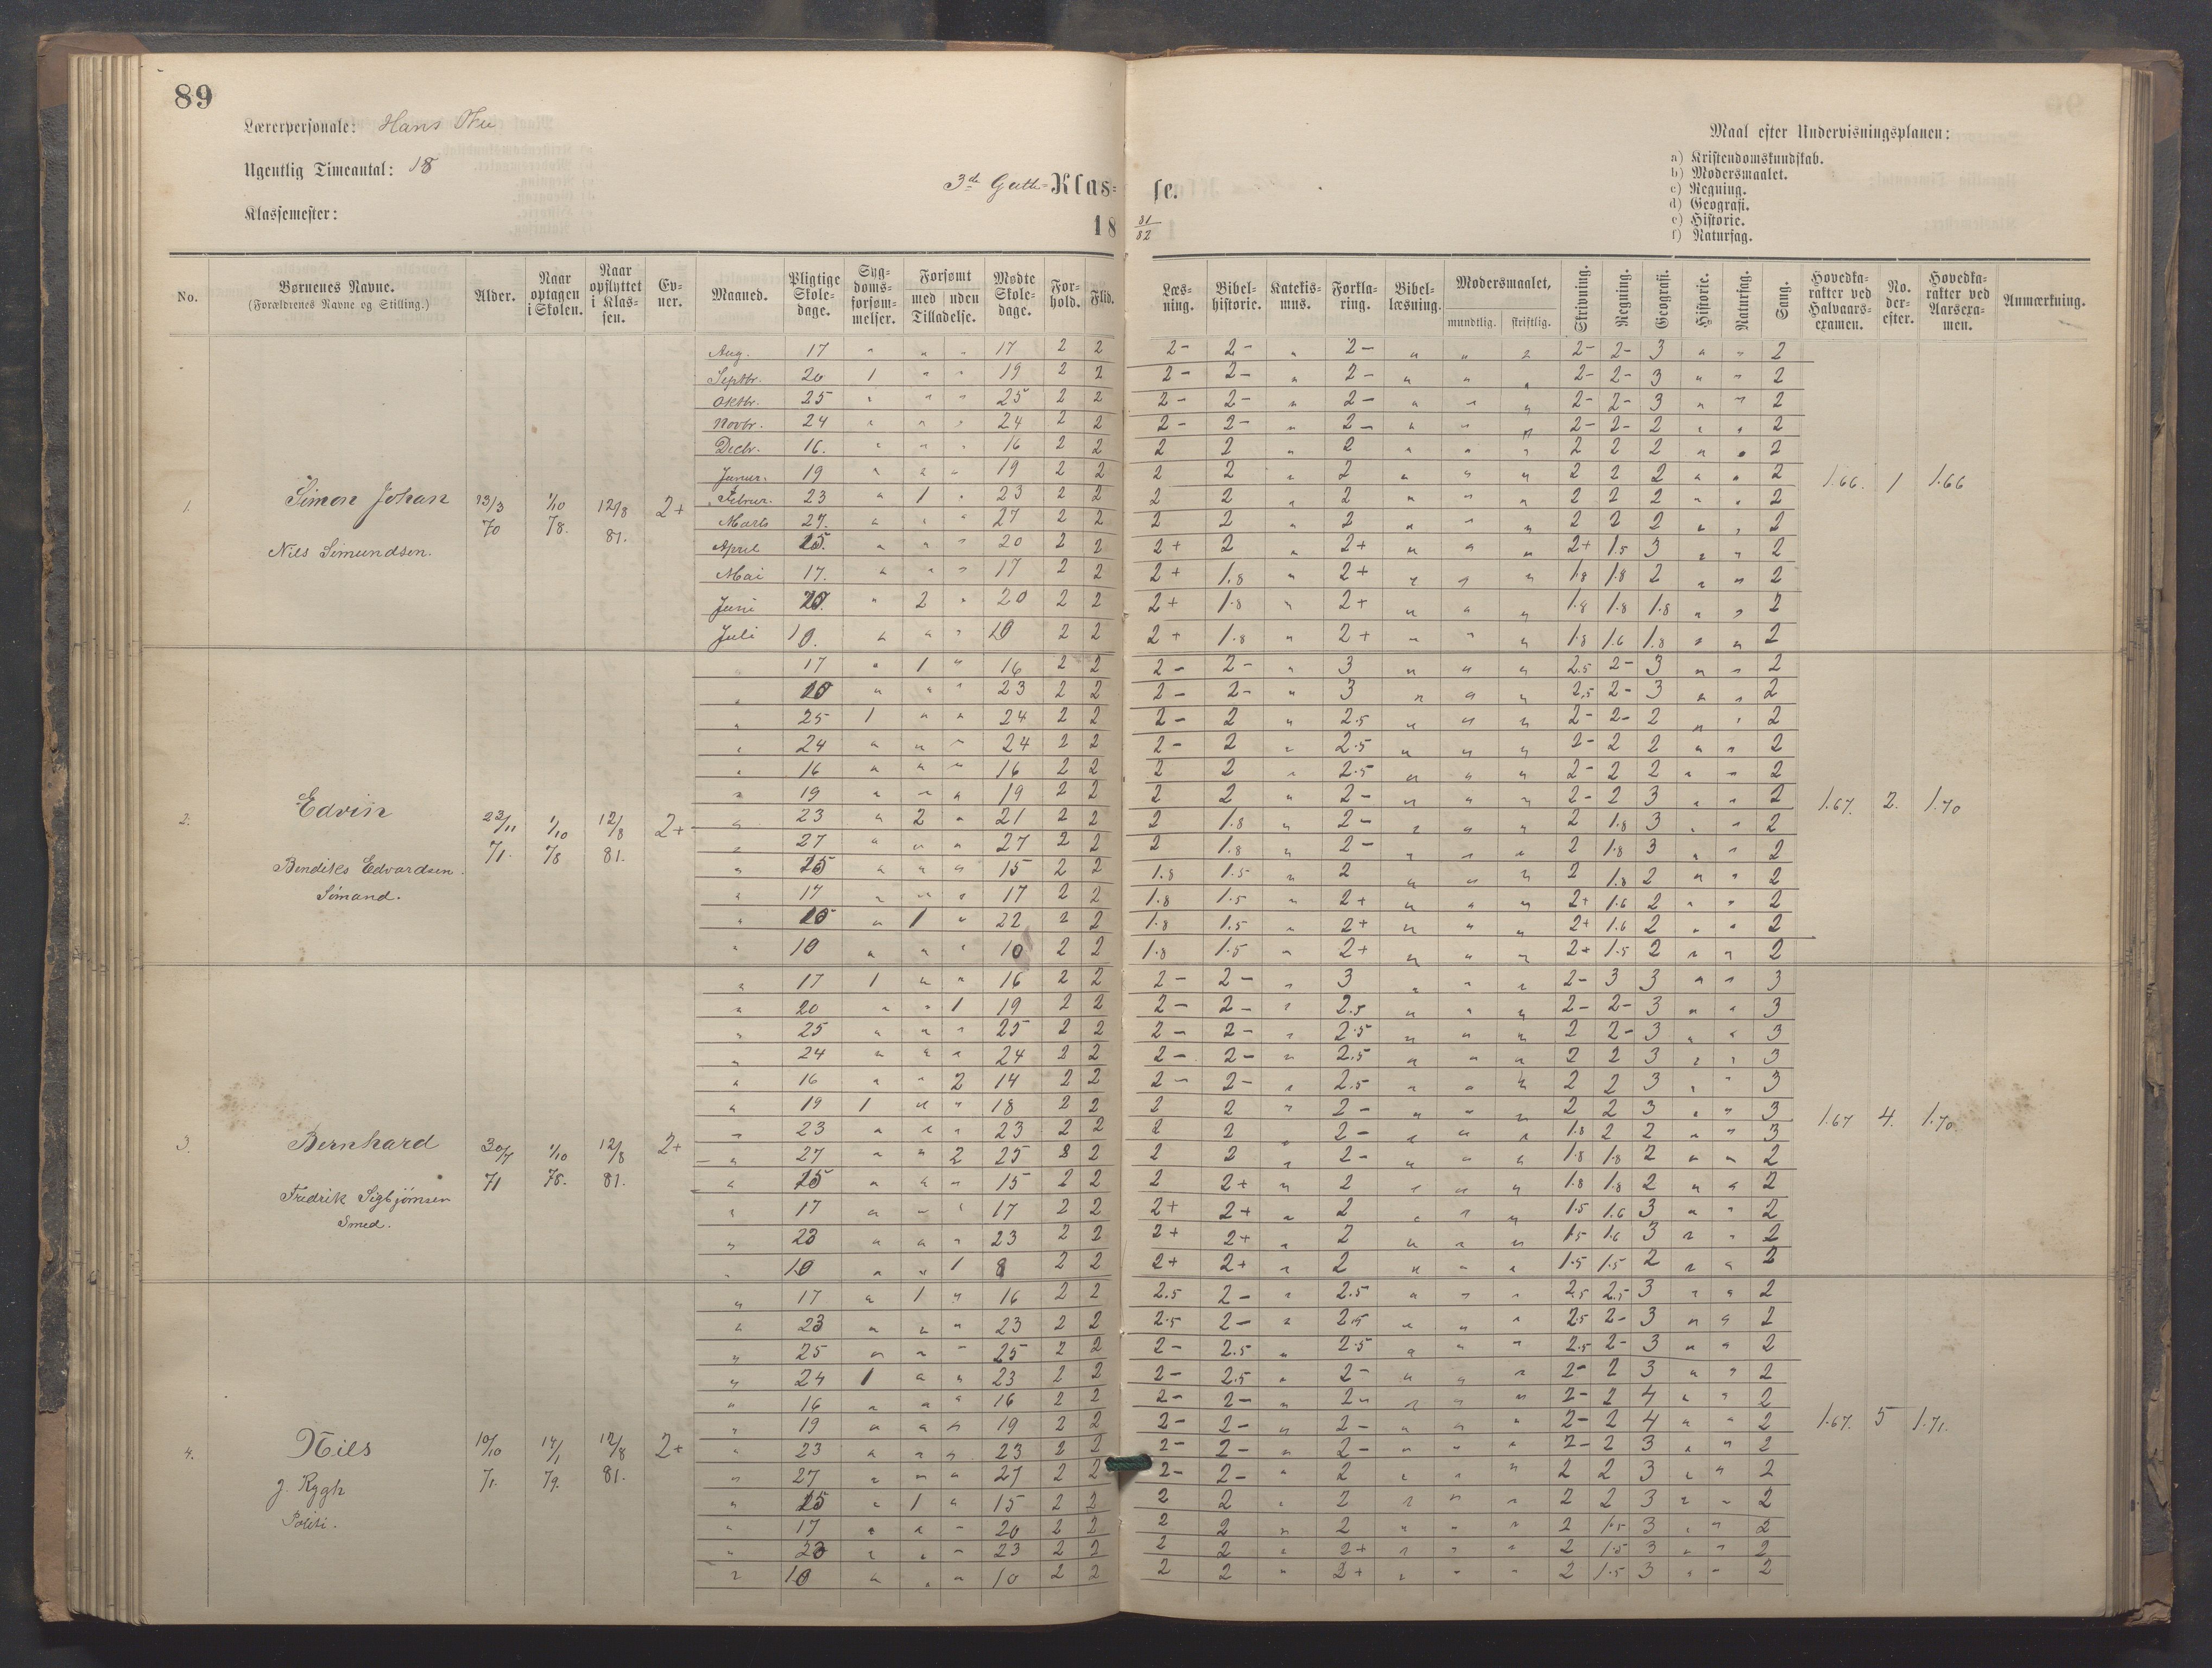 89
Lærerpersonale: Hans
Ugentlig Timeantal: 18
Klassemester:
3de Gutte-Klas-
se.
18
81/82
Maal efter Undervisningsplanen:
a) Kristendomskundskab.
b) Modersmaalet.
c) Regning.
d) Geografi.
e) Historie.
f) Naturfag.
No.
Børnenes Navne.
(Forældrenes Navne og Stilling.)
Alder.
Naar optagen i Skolen.
Naar opflyttet i Klas-sen.
Ev-ner.
Maaned.
Pligtige Skole-dage.
Syg-doms-forsøm-melser.
Forsømt
med uden
Tilladelse.
Mødte Skole-dage.
For-hold.
Flid.
Læs-ning.
Bibel-historie.
Katekis-mus.
Forkla-ring.
Bibel-læsning.
Modersmaalet,
mundtlig. skriftlig.
Skrivning.
Regning.
Geografi.
Historie.
Naturfag.
Sang.
Hovedka-rakter ved Halvaars-examen.
No. der-efter.
Hovedka-rakter ved Aarsexa-men.
Anmærkning.
Aug. 17 " " " 17 2 2 2- 2- " 2- " " " 2- 2- 3 " " 2
Septbr. 20 1 " " 19 2 2 2- 2- " 2- " " " 2- 2- 3 " " 2
Oktbr. 25 " " " 25 2 2 2- 2- " 2- " " " 2- 2- 3 " " 2
Novbr. 24 " " " 24 2 2 2- 2- " 2- " " " 2- 2- 2 " " 2
Decbr. 16. " " " 16 2 2 2 2 " 2 " " " 2 2 2 " " 2
Januar. 19 " " " 19 2 2 2 2 " 2 " " " 2 2 2 " " 2
Februr. 23 " 1 " 23 2 2 2 2 " 2 " " " 2 2 2 " " 2
Marts 27. " " " 27 2 2 2 2 " 2 " " " 2 2 2 " " 2
April 15. " " " 20 2 2 2+ 2 " 2+ " " " 2+ 1.5 3 " " 2
Mai 17. " " " 17 2 2 2+ 1.8 " 2+ " " " 1.8 1.8 2 " " 2
Juni " 2 " 20 2 2 2+ 1.8 " 2+ " " " 1.8 1.8 1.8 " " 2
Juli 10. " " " 10 2 2 2+ 1.8 " 2+ " " " 1.8 1.6 1.8 " " 2
1. Simon Johan 13/3 70 1/10 78. 12/8 81. 2+ 1.66. 1 1.66
Nils Simundsen.
17 " 1 " 16 2 2 2- 2- " 3 " " " 2.5 2- 3 " " 2
" " " " 23 2 2 2- 2- " 3 " " " 2.5 2- 3 " " 2
" 25 1 " " 24 2 2 2- 2 " 2.5 " " " 2- 2- 2 " " 2
" 24 " " " 24 2 2 2- 2 " 2.5 " " " 2- 2 2 " " 2
" 16 " " " 16 2 2 2 2 " 2.5 " " " 2- 2 2 " " 2
" 19 " " " 19 2 2 2 2 " 2- " " " 2- 2 3 " " 2
" 23 " 2 " 21 2 2 2 1.8 " 2- " " " 2 1.8 3 " " 2
" 27 " " " 27 2 2 2 1.8 " 2- " " " 2 1.8 3 " " 2
" 15 " " " 15 2 2 1.8 1.5 " 2 " " " 2 1.8 2 " " 2
" 17 " " " 17 2 2 1.8 1.5 " 2+ " " " 2+ 1.6 2 " " 2
" " 1 " 22 2 2 1.8 1.5 " 2+ " " " 2+ 1.6 2 " " 2
" 10 " " " 10 2 2 1.8 1.5 " 2+ " " " 2+ 1.5 2 " " 2
2. Edvin 23/11 71. 1/10 78 12/8 81. 2+ 1.67. 2. 1.70
Bendiks Edvardsen.
Sømand.
" 17 1 " " 16 2 2 2- 2- " 3 " " " 2- 3 3 " " 3
" 20 " " 1 19 2 2 2- 2- " 2.5 " " " 2- 2- 3 " " 3
" 25 " " " 25 2 2 2- 2- " 2.5 " " " 2 2- 3 " " 3
" 24 " " " 24 2 2 2- 2- " 2.5 " " " 2 2 3 " " 3
" 16 " " 2 14 2 2 2- 2- " 2.5 " " " 2 2 3 " " 3
" 19 1 " " 18 2 2 2 2 " 2- " " " 2 2 3 " " 3
" 23 " " " 23 2 2 2 2 " 2- " " " 1.8 2 2 " " 3
" 27 " " 2 25 2 2 2 2 " 2- " " " 1.8 1.8 2 " " 2
" 15 " " " 15 2 2 2 2+ " 2 " " " 1.8 1.8 2 " " 2
" 17 " " " 17 2 2 2+ 2+ " 2 " " " 1.5 1.6 3 " " 2
" 23 " " " 23 2 2 2+ 2+ " 2 " " " 1.5 1.6 3 " " 2
" 10 " " 1 8 2 2 2+ 2+ " 2 " " " 1.5 1.5 2 " " 2
3. Bernhard 30/7 71 1/10 78. 12/8 81. 2+ 1.67 4. 1.70.
Fredrik Sigbjørnsen
Smed.
" 17 " 1 " 16 2 2 2.5 2- " 2.5 " " " 2.5 2.5 3 " " 2
" 23 " " " 23 2 2 2.5 2- " 2.5 " " " 2.5 2- 3 " " 2
" 25 " " " 25 2 2 2- 2.5 " 2.5 " " " 2.5 2- 3 " " 2
" 24 1 " " 23 2 2 2- 2.5 " 2- " " " 2- 2 3 " " 2
" 16 " " " 16 2 2 2- 2- " 2- " " " 2- 2 4 " " 2
" 19 " " " 19 2 2 2- 2- " 2- " " " 2- 2 4 " " 2
" 23 " " " 23 2 2 2- 2- " 2- " " " 2- 2 3 " " 2
" 27 " " " 27 2 2 2- 2- " 2 " " " 2 2 3 " " 2
" 15 " 1 " 15 2 2 2 2 " 2 " " " 2 2 3 " " 2
" 17 " " " 20 2 2 2 2 " 2 " " " 2 1.5 3 " " 2
" 23 " " " 23 2 2 2 2 " 2+ " " " 2 1.5 3 " " 2
" 10 " " " 10 2 2 2 2 " 2+ " " " 2 1.5 3 " " 2
4. Nils 10/10 71. 14/1 79. 12/8 81. 2+ 1.67. 5 1.71.
J. Rygh
Politi.